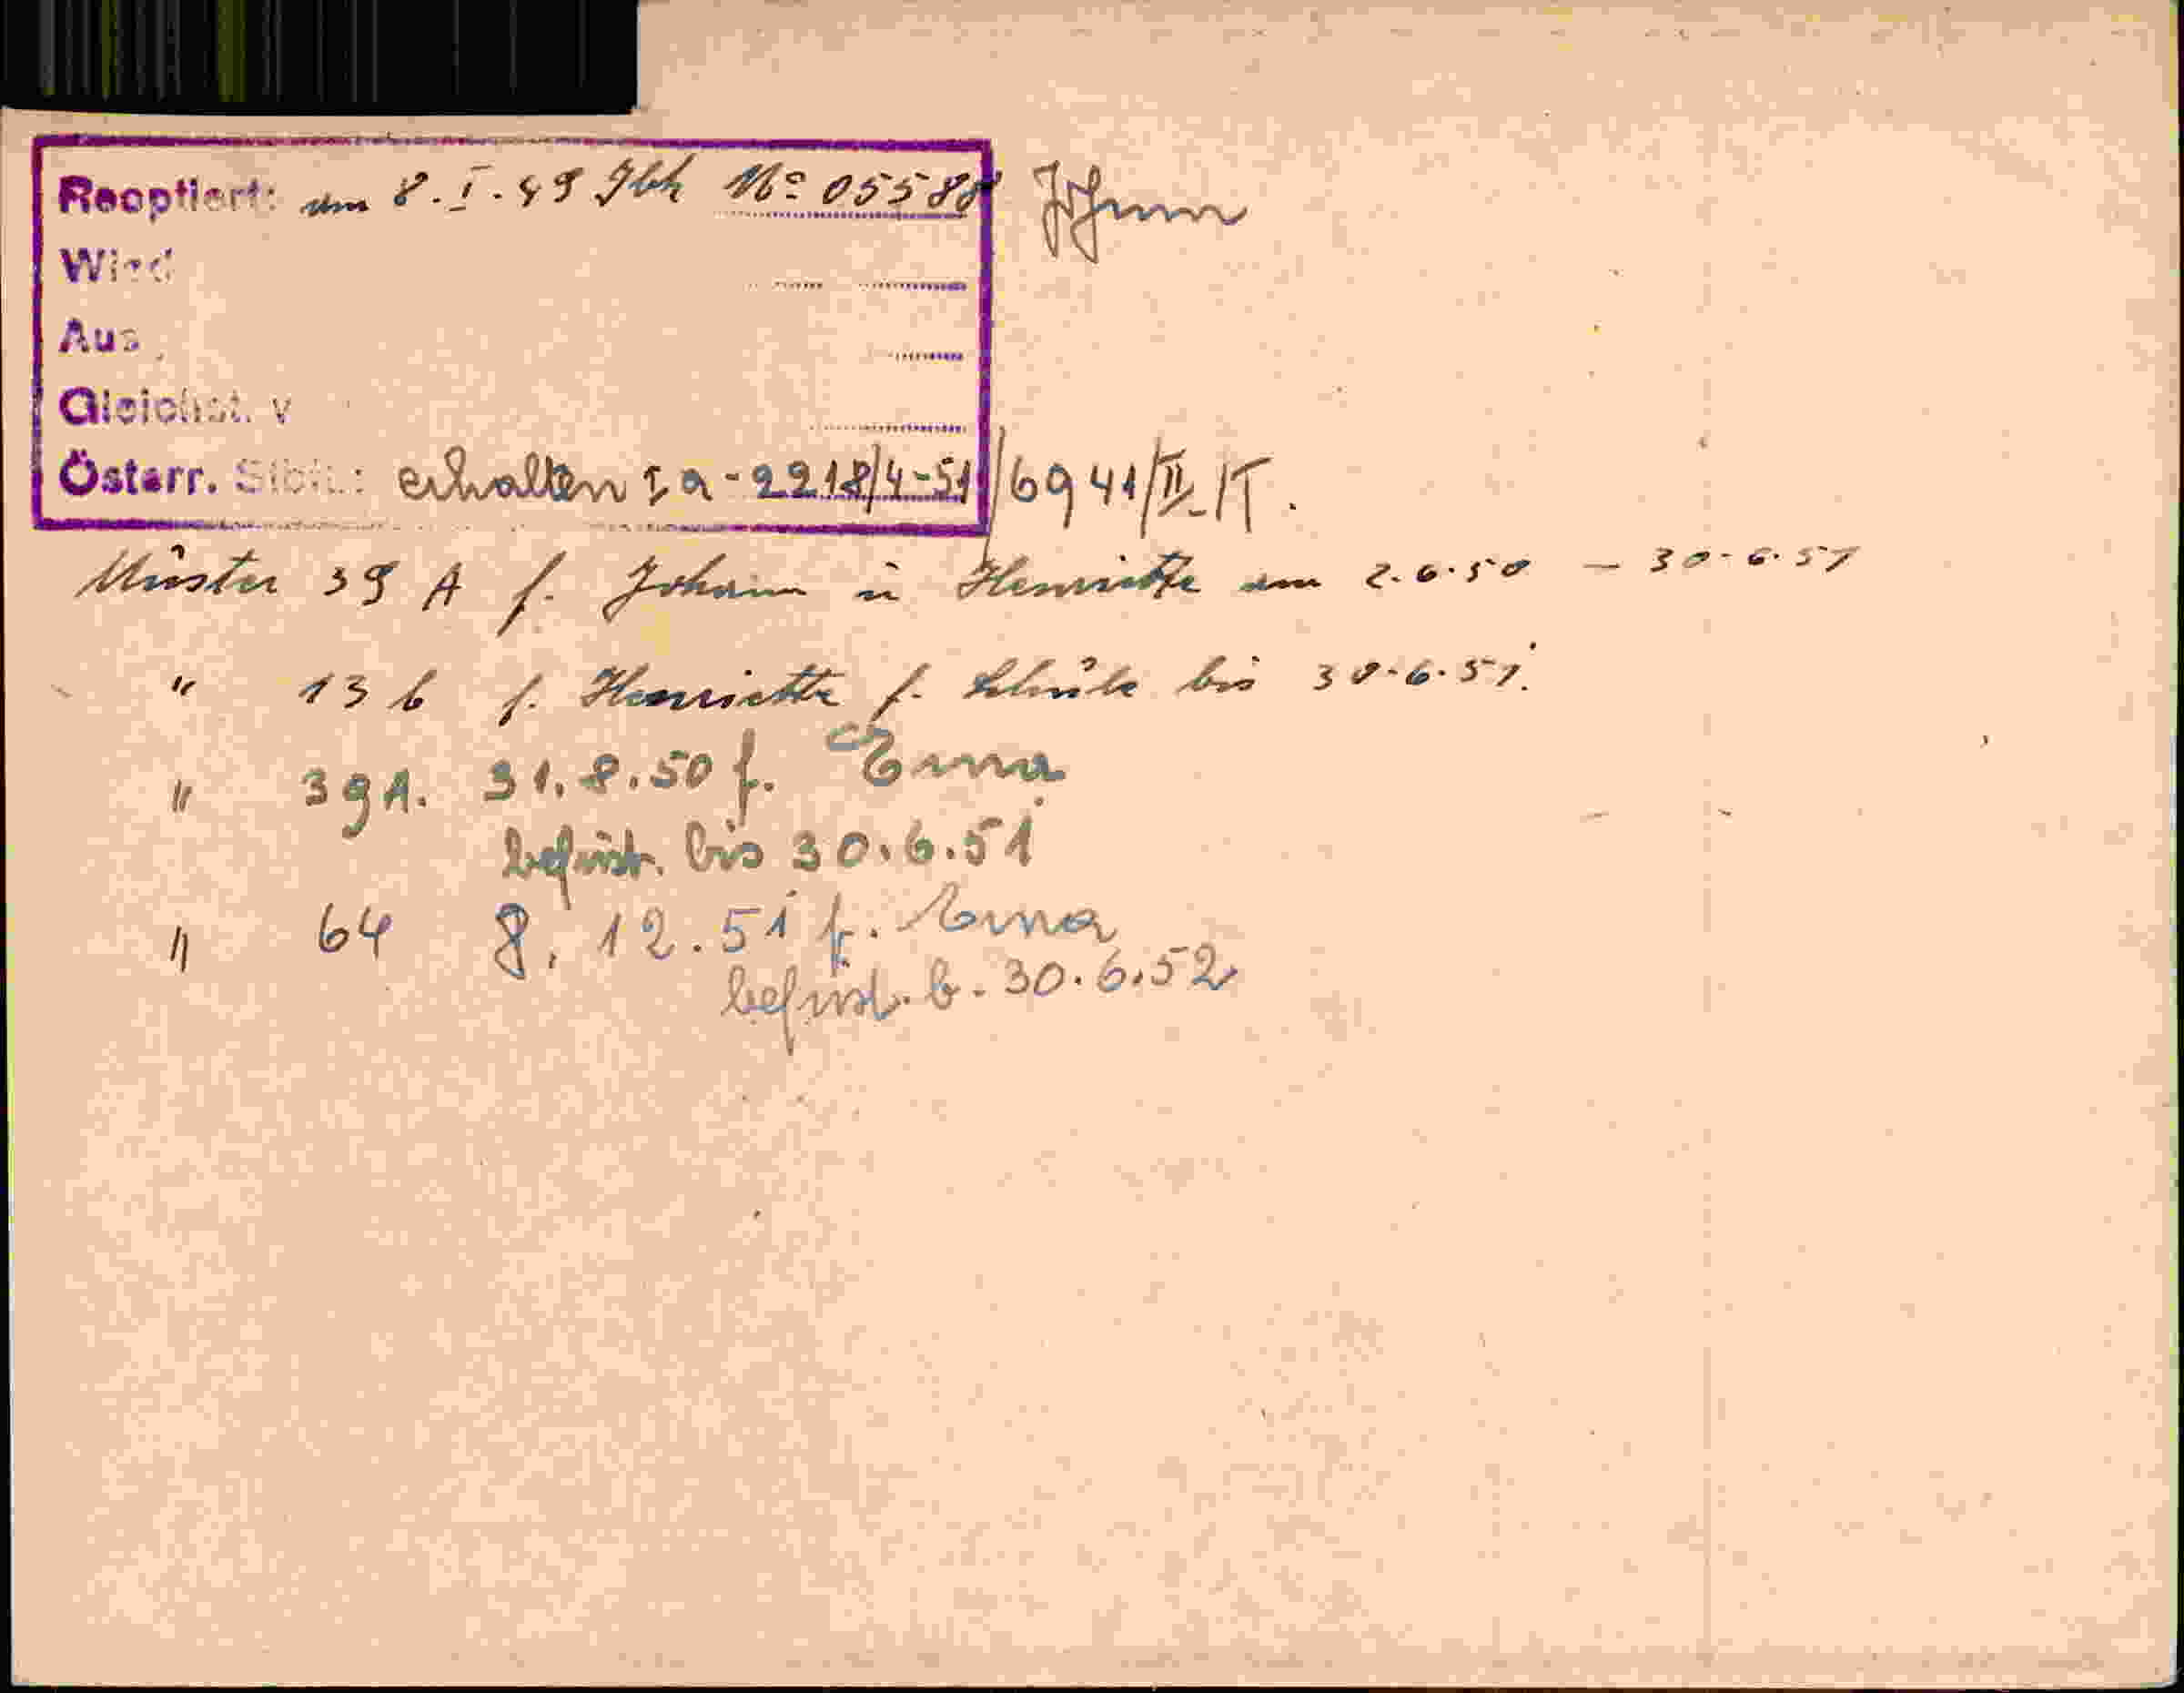 Reoptiert: am 8.I.49 Gbh No 05588 Johann
Wied
Aus
Gleichst. v
Österr. Stbü.: erhalten Ia-2218/4-51//6941/II-IT.
Muster 39 A f. Johann u Henriette am 2.6.50 – 30.6.51
" 13 b f. Henriette f. Schule bis 30.6.51.
" 39A. 31.8.50 f. Erna
befrist. bis 30.6.51
" 64 8.12.51 f. Erna
befrist. b. 30.6.52